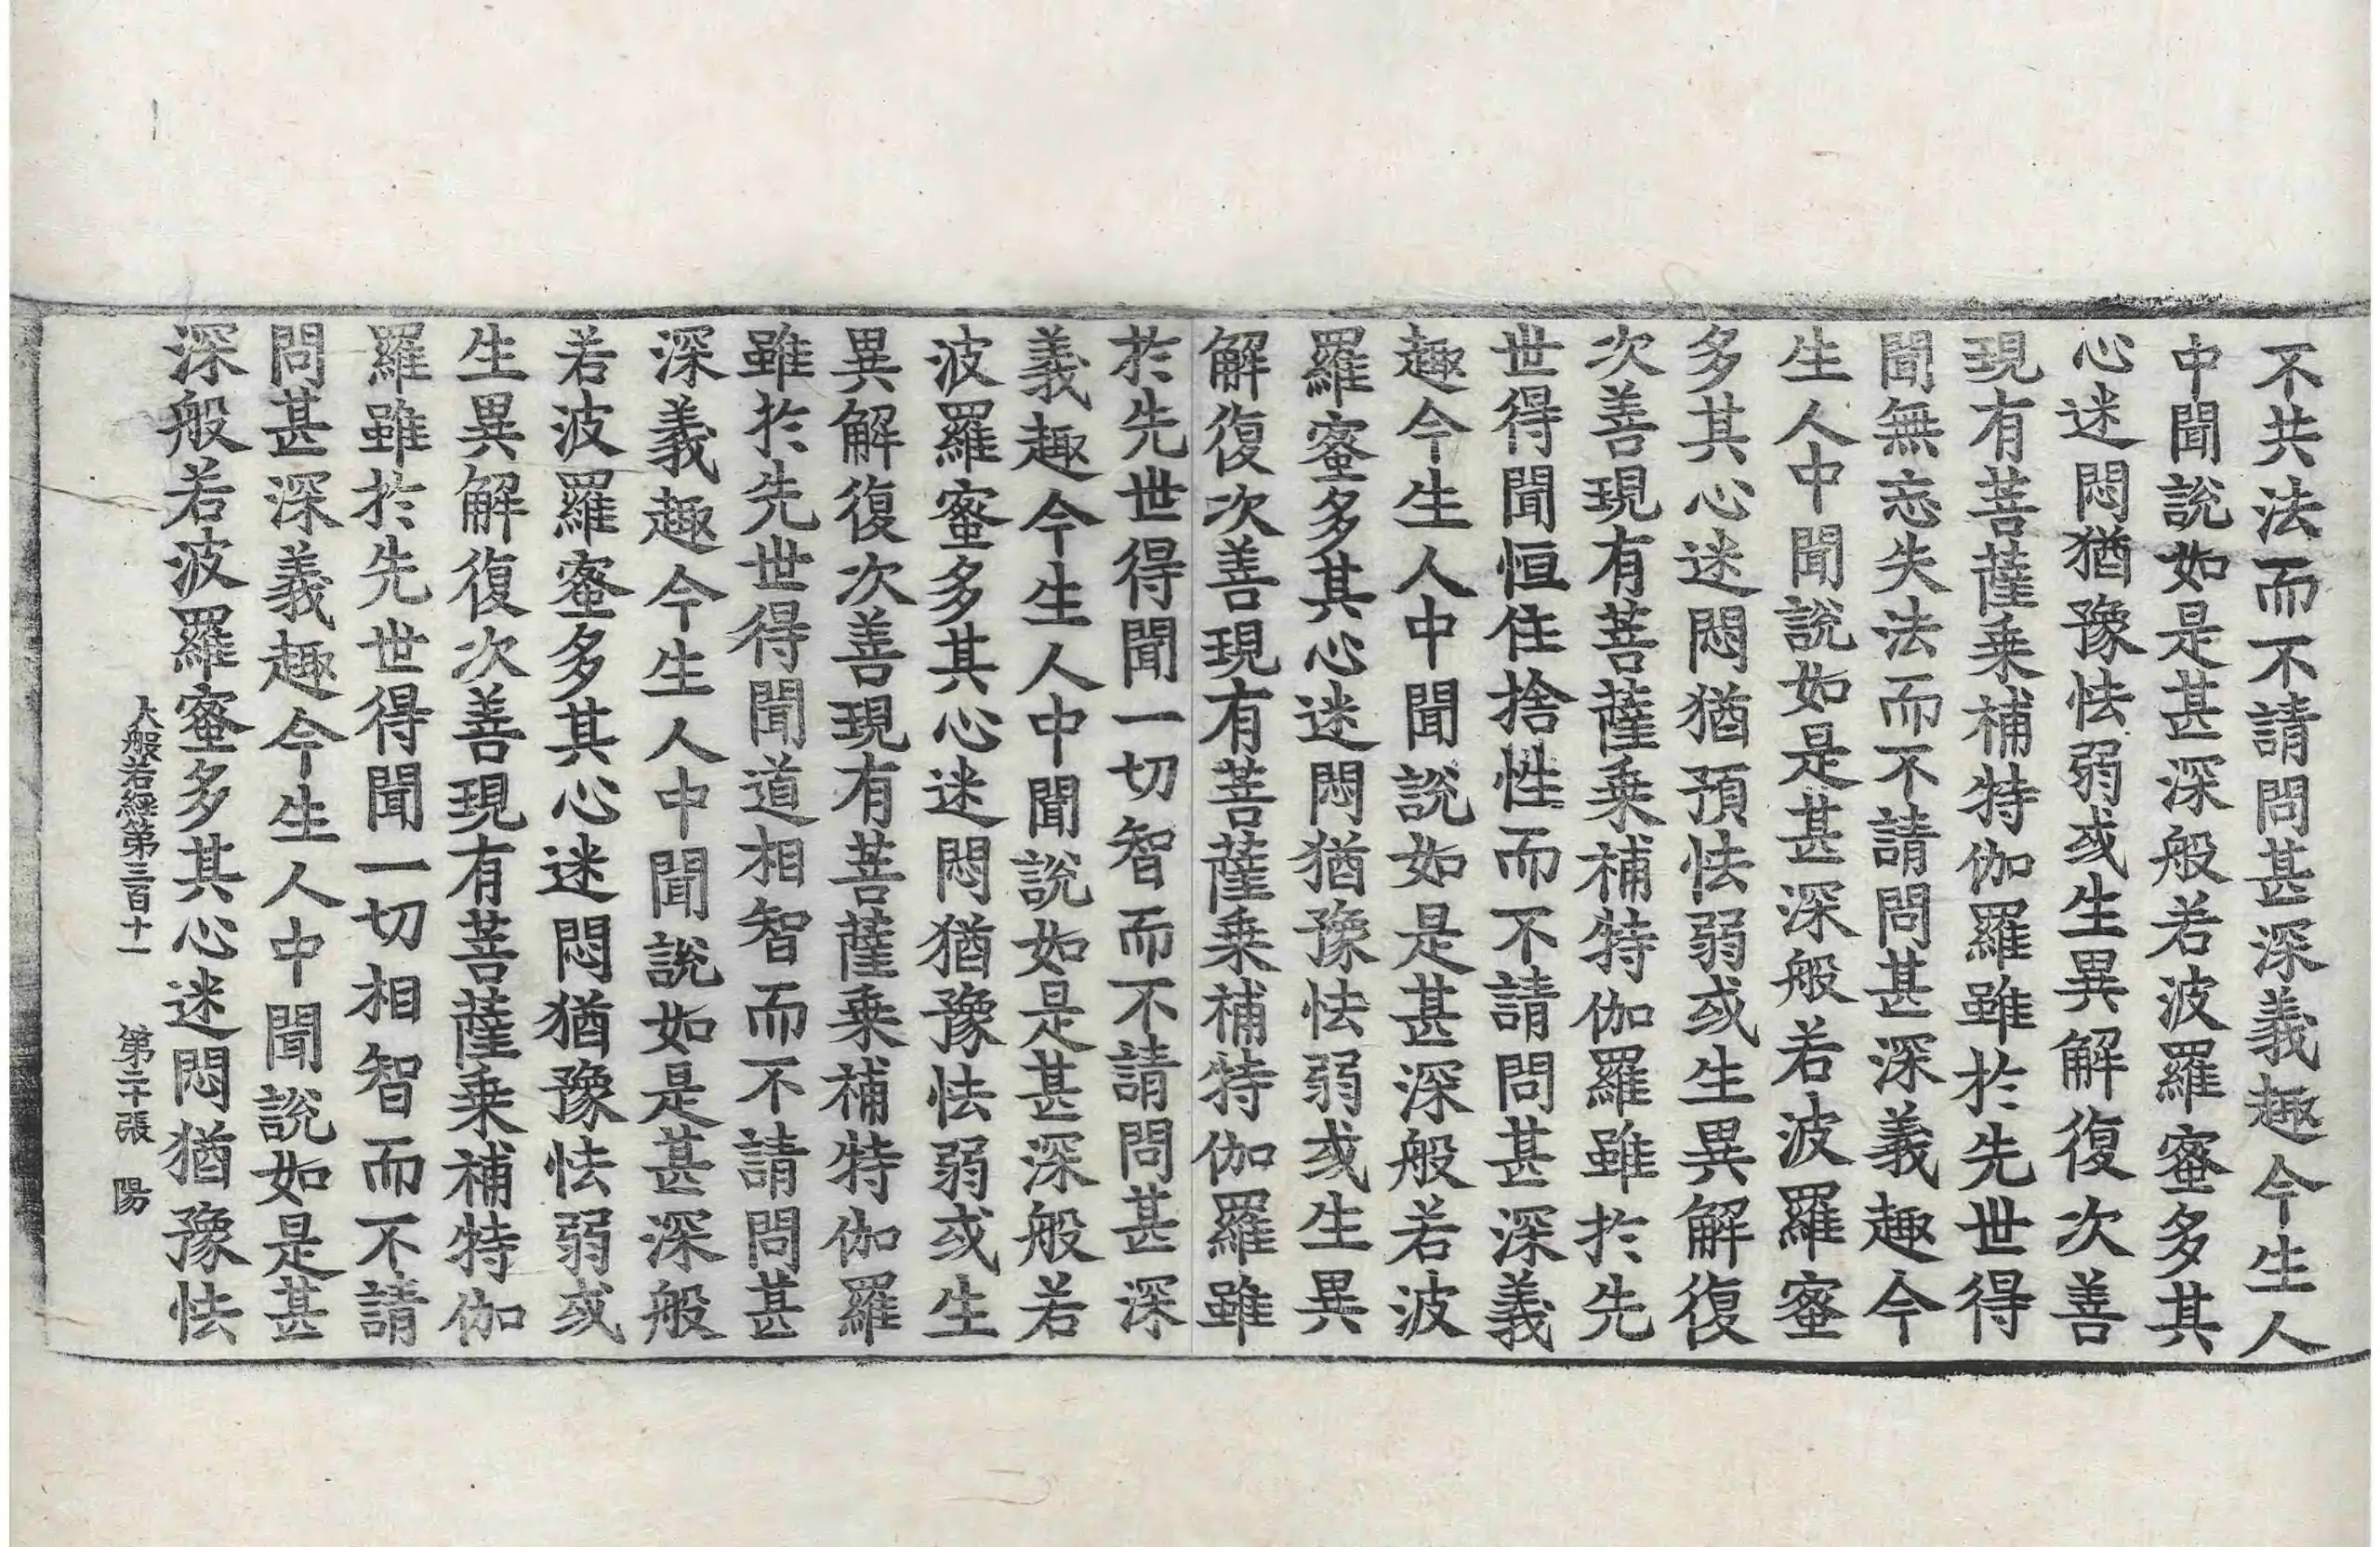 不共法而不請問甚深義趣今生人
中聞說如是甚深般若波羅蜜多其
心迷悶猶豫怯弱或生異解復次善
現有菩薩乗補特伽羅雖於先世得
聞無忘失法而不請問甚深義趣今
生人中聞說如是甚深般若波羅蜜
多其心迷悶猶預怯弱或生異解復
次善現有菩薩乗補特伽羅雖於先
世得聞恒住捨性而不請問甚深義
趣今生人中聞說如是甚深般若波
羅蜜多其心迷悶猶豫怯弱或生異
解復次善現有菩薩乗補特伽羅雖
於先世得聞一切智而不請問甚深
義趣今生人中聞說如是甚深般若
波羅蜜多其心迷悶猶豫怯弱或生
異解復次善現有菩薩乗補特伽羅
雖於先世得聞道相智而不請問甚
深義趣今生人中聞說如是甚深般
若波羅蜜多其心迷悶猶豫怯弱或
生異解復次善現有菩薩乗補特伽
羅雖於先世得聞一切相智而不請
問甚深義趣今生人中聞說如是甚
深般若波羅蜜多其心迷悶猶豫怯
大般若經第三百十一 第二十張 陽